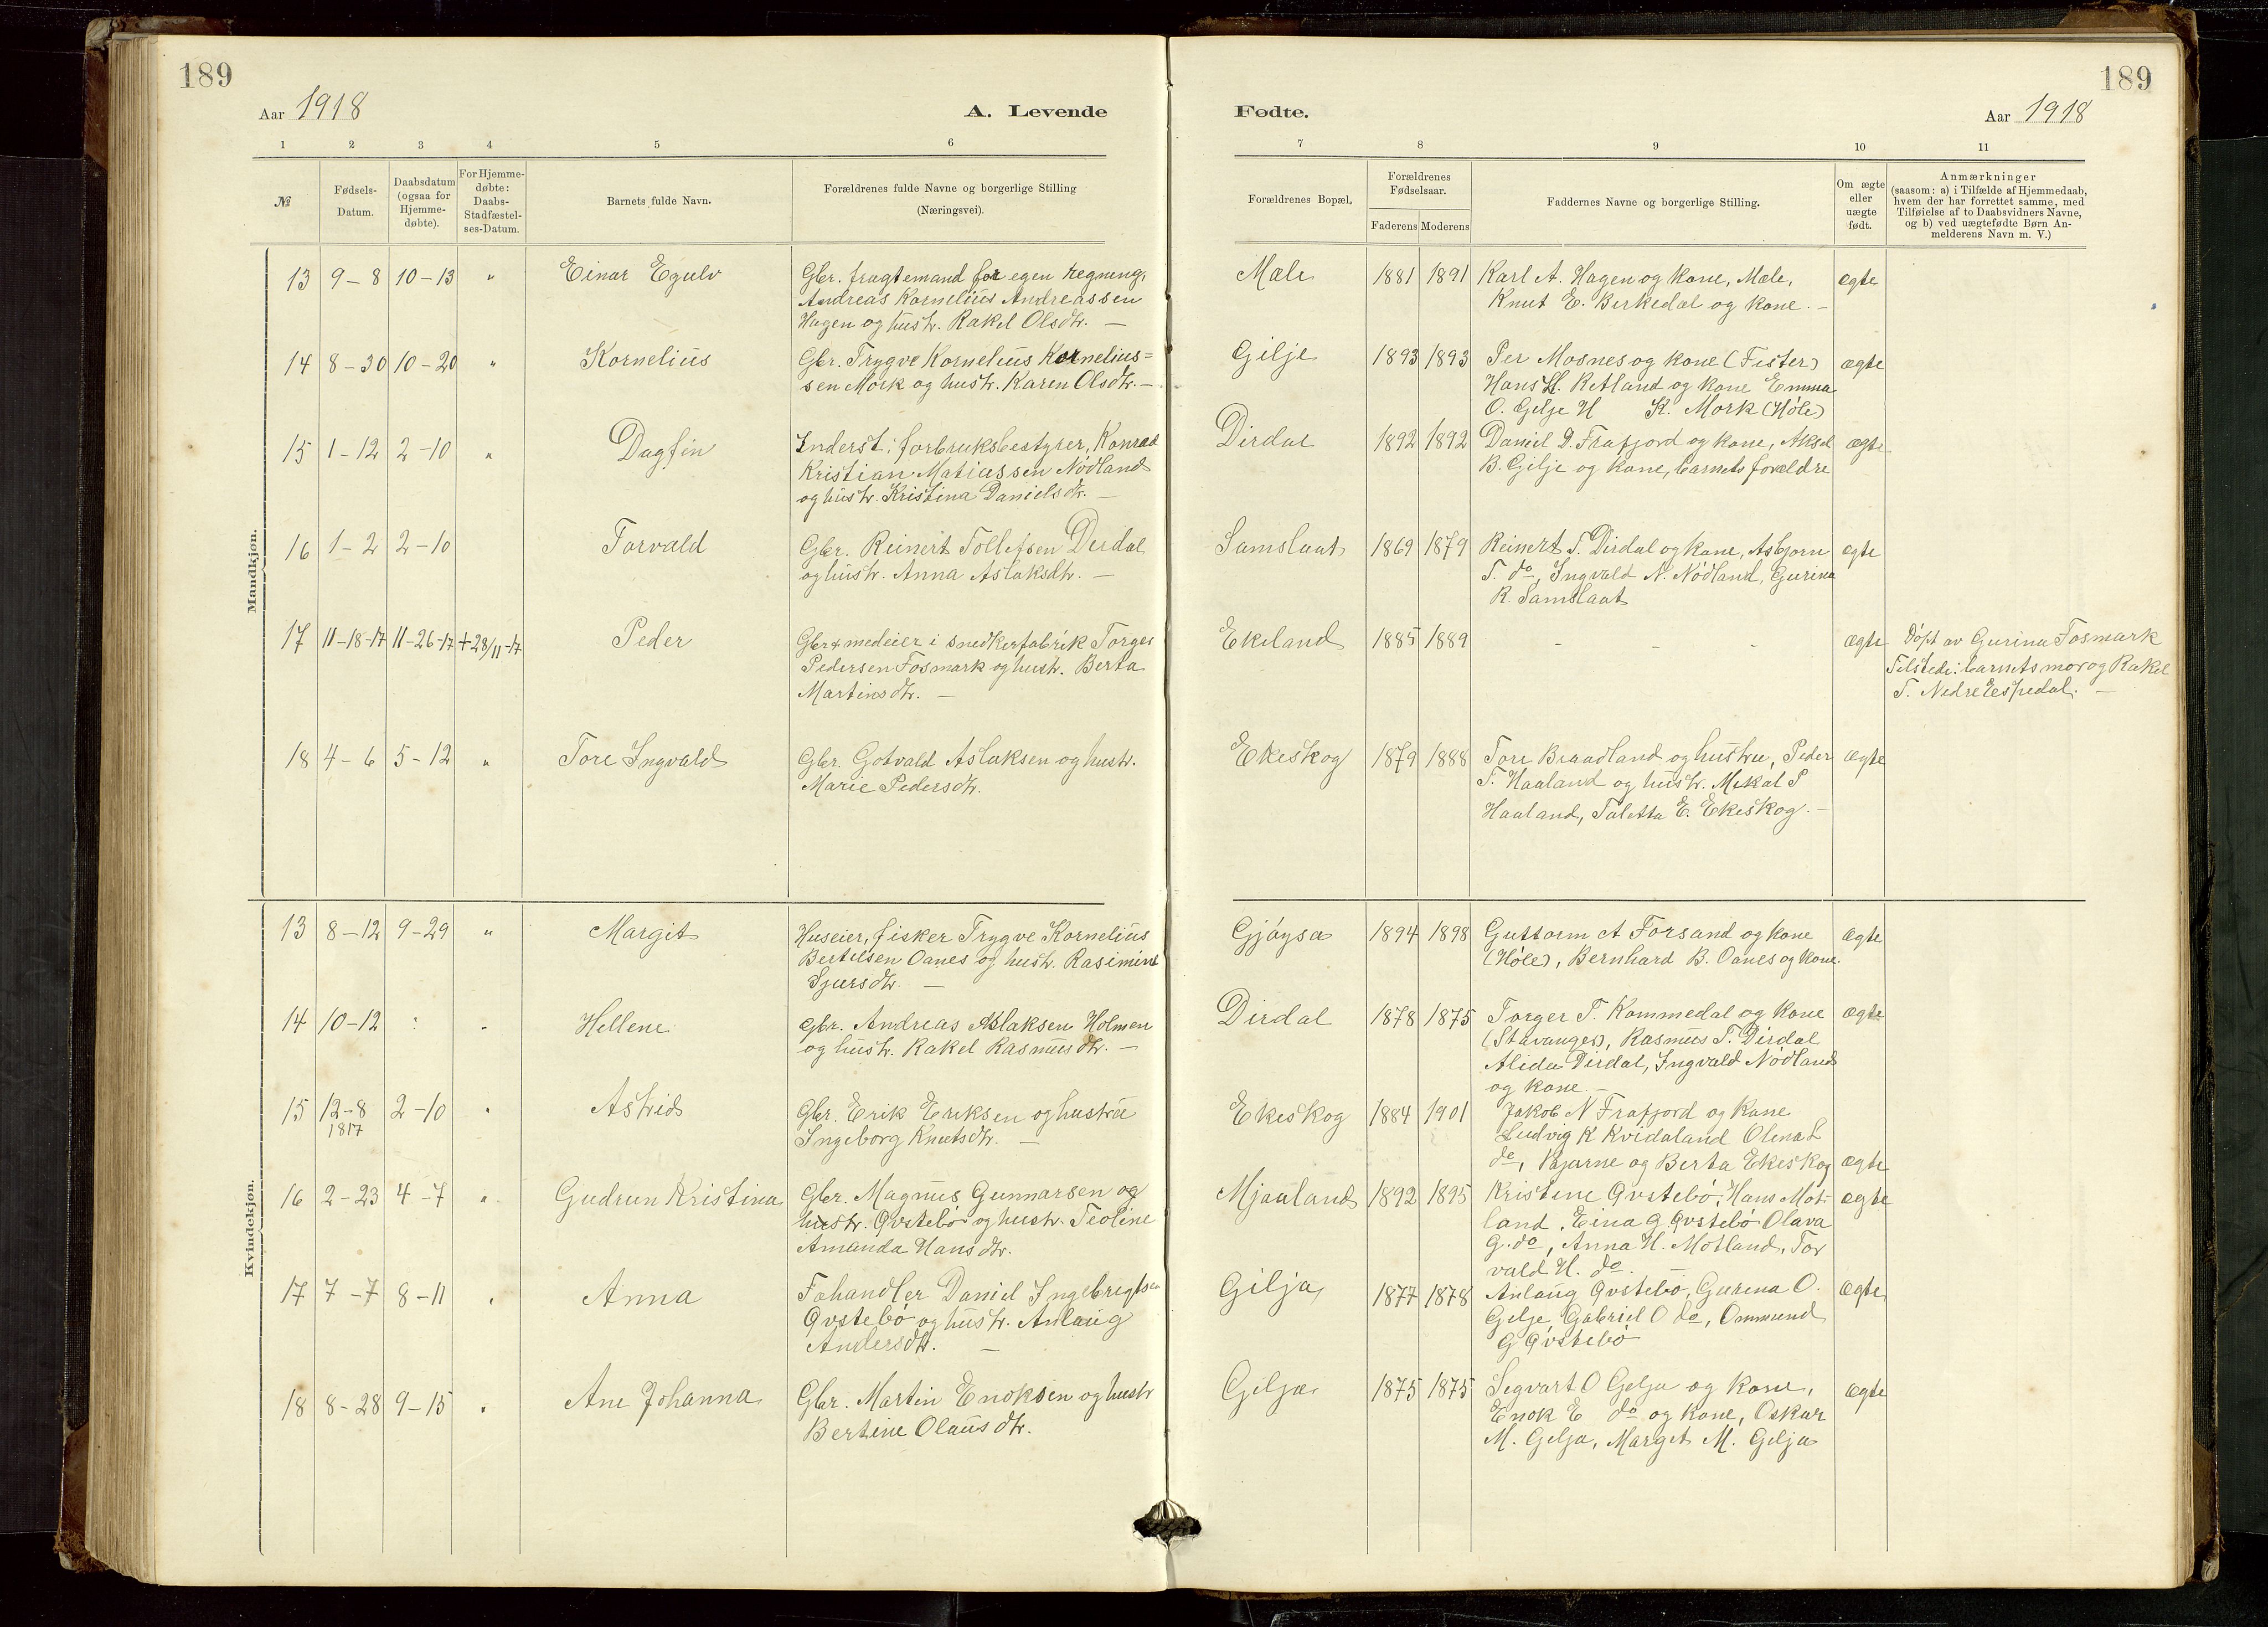 189
189
Aar 1918
A. Levende
Fødte.
Aar 1918
1 2 3 4 5 6 7 8 9 10 11
№
Fødsels-
Datum.
Daabsdatum
(ogsaa for
Hjemme-
døbte).
For Hjemme-
døbte:
Daabs-
Stadfæstel-
ses-Datum.
Barnets fulde Navn.
Forældrenes fulde Navne og borgerlige Stilling
(Næringsvei).
Forældrenes Bopæl.
Forældrenes
Fødselsaar.
Faderens Moderens
Faddernes Navne og borgerlige Stilling.
Om ægte
eller
uægte
født.
Anmærkninger
(saasom: a) i Tilfælde af Hjemmedaab,
hvem der har forrettet samme, med
Tilføielse af to Daabsvidners Navne,
og b) ved uægtefødte Børn An-
melderens Navn m. V.)
Mandkjøn.
13 9-8 10-13 " Einar Egulv
Gbr. fragtemand for egen regning,
Andreas Kornelius Andreassen
Hagen og hustr. Rakel Olsdtr. —
Mæle 1881 1891
Karl A. Hagen og kone, Mæle,
Knut E. Birkedal og kone. —
ægte
14 8-30 10-20 " Kornelius
Gbr. Trygve Kornelius Kornelius=
sen Mork og hustr. Karen Olsdtr. —
Gilje 1893 1893
Per Mosnes og kone (Fister)
Hans H. Retland og kone Emma
O. Gilje H K. Mork (Høle)
ægte
15 1-12 2-10 " Dagfin
Inderst: forbruksbestyrer, Konrad
Kristian Matiassen Nødland
og hustr. Kristina Danielsdtr. —
Dirdal 1892 1892
Daniel D. Frafjord og kone, Aksel
B. Gilje og kone, barnets forældre
ægte
16 1-2 2-10 Torvald
Gbr. Reinert Tollefsen Dirdal
og hustr. Anna Aslaksdtr. —
Samslaat 1869 1879
Reinert T. Dirdal og kone, Asbjørn
T. do, Ingvald N. Nødland, Gurina
R. Samslaat
ægte
17 11-18-17 11-26-17 +28/11-17 Peder
Gbr + medeier i snedkerfabrik Torger
Pedersen Fosmark og hustr. Berta
Martinsdtr. —
Ekeland 1885 1889
- - -
ægte
Døpt av Gurina Fosmark
Tilstede: barnets mor og Rakel
T. Nedre Espedal. —
18 4-6 5-12 " Tore Ingvald
Gbr. Gotvald Aslaksen og hustr.
Marie Pedersdtr.
Ekeskog 1879 1888
Tore Braadland og hustru, Peder
T. Haaland og hustr. Mikal P
Haaland, Taletta E. Ekeskog. —
ægte
Kvindekjøn.
13 8-12 9-29 " Margit
Huseier, fisker Trygve Kornelius
Bertelsen Oanes og hustr. Rasimine
Sjursdtr. —
Gjøysa 1894 1898
Guttorm A Forsand og kone
(Høle), Bernhard B. Oanes og kone.
ægte
14 10-12 : " Hellene
Gbr. Andreas Aslaksen Holmen
og hustr. Rakel Rasmusdtr. —
Dirdal 1878 1875
Torger T. Kommedal og kone
(Stavanger), Rasmus T. Dirdal
Alida Dirdal, Ingvald Nødland
og kone. —
ægte
15 12-8
1817
2-10 " Astrid
Gbr. Erik Eriksen og hustru
Ingeborg Knutsdtr. —
Ekeskog 1884 1901
Jakob N Frafjord og kone
Ludvig K Kvidaland Olena L
do, Bjarne og Berta Ekeskog
ægte
16 2-23 4-7 " Gudrun Kristina
Gbr. Magnus Gunnarsen og
hustr. Qvstebø og hustr. Teoline
Amanda Hansdtr.
Mjaaland 1892 1895
Kristine Qvstebø, Hans Mot-
land, Eina G. Qvstebø Olava
G. do, Anna H. Motland, Tor
vald H. do. —
ægte
17 7-7 8-11 " Anna
Fehandler Daniel Ingebregtsen
Qvstebø og hustr. Anlaug
Andersdtr. —
Gilja 1877 1878
Anlaug Qvstebø, Gurena O.
Gilje, Gabriel O do, Ommund
G Qvstebø
ægte
18 8-28 9-15 " Ane Johanna
Gbr. Martin Enoksen og hustr
Bertine Olausdtr.
Gilja 1875 1875
Segvart O Gilja og kone,
Enok E do og kone, Oskar
M. Gilja, Marget M. Gilja
ægte